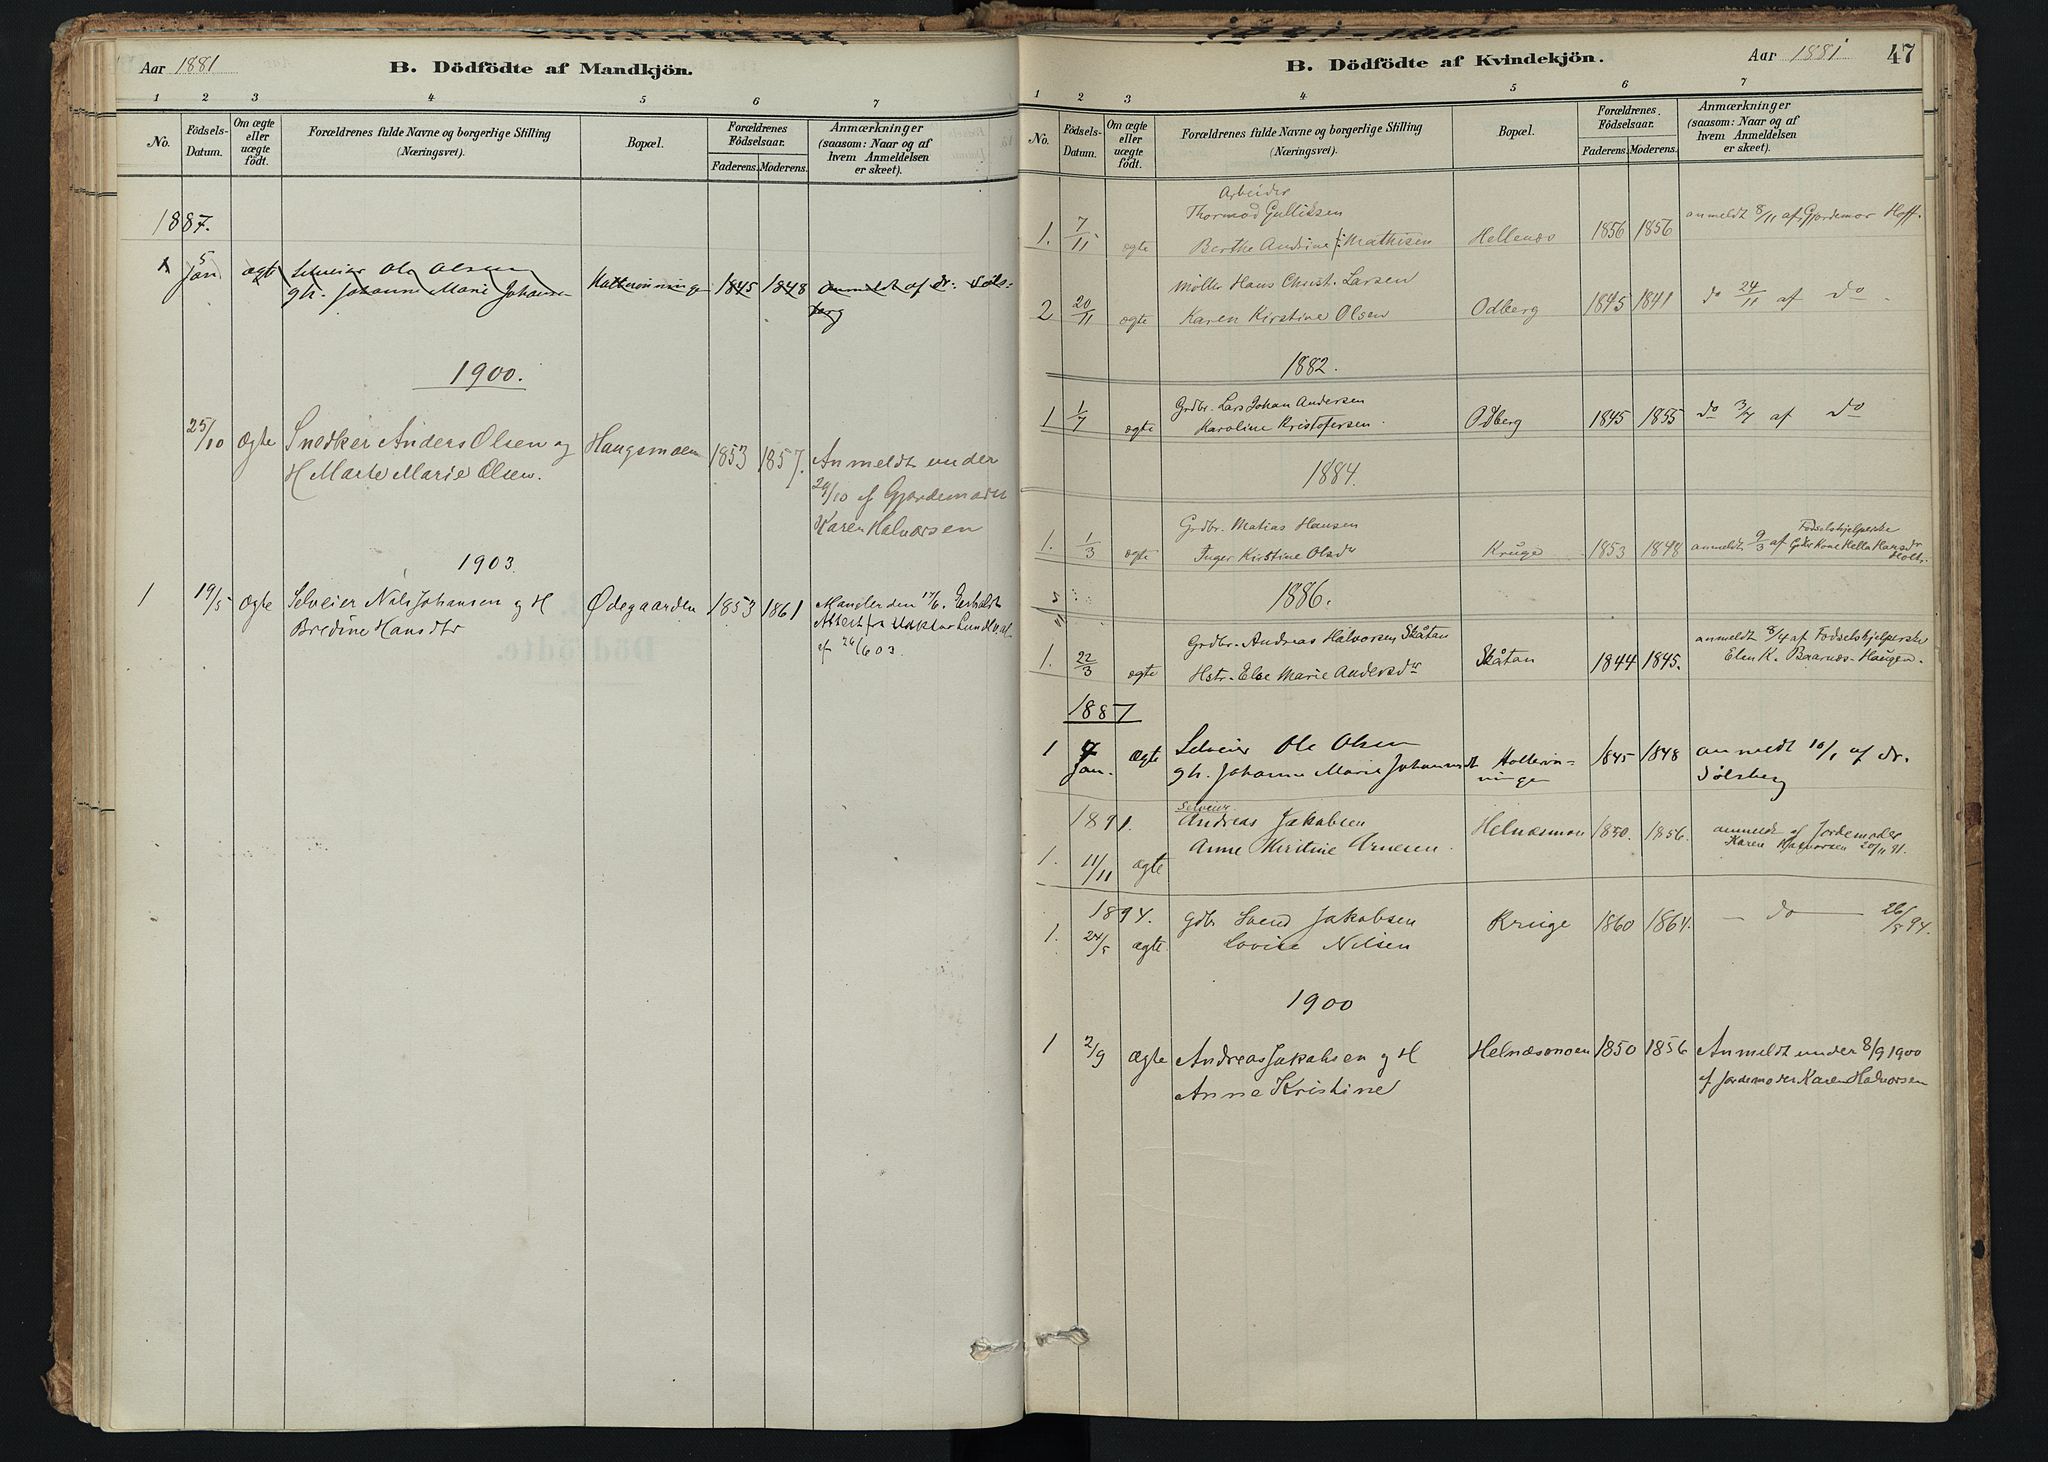 Aar 1881
B. Dödfödte af Mandkjön.
1 2 3 4 5 6 7
No.
Födsels-
Datum.
Om ægte
eller
uægte
födt.
Forældrenes fulde Navne og borgerlige Stilling
(Næringsvei).
Bopæl.
Forældrenes
Födselsaar.
Faderens. Moderens.
Anmærkninger
(saasom: Naar og af
hvem Anmeldelsen
er skeet).
1887.
1 5 Jan ægte Selveier Ole Olsen 1845 1848 anmeldt af dr. Söls-
gh. Johanne Marie Johans berg
1900.
25/10 Ægte Snedker Anders Olsen og Haugsmoen 1853 1857. Anmeldt under
H Marte Marie Olsen. 29/10 af Gjordemoder
Karen Halvorsen
1903.
1 19/5 Ægte Selveier Nils Johansen og H Ødegaarden 1853 1861 Mangler den 17/6. Erholdt
Bredine Hansdtr Attest fra Doktor Lund
af 26/6 03.
B. Dödfödte af Kvindekjön.
Aar 1881
47
1 2 3 4 5 6 7
No.
Födsels-
Datum.
Om ægte
eller
uægte
födt.
Forældrenes fulde Navne og borgerlige Stilling
(Næringsvei).
Bopæl.
Forældrenes
Födselsaar.
Faderens. Moderens.
Anmærkninger
(saasom: Naar og af
hvem Anmeldelsen
er skeet).
Arbeider
Thormod Gulliksen
1. 7/11 ægte Berthe Andrine Mathisen Hellenæs 1856 1856 anmeldt 8/11 af Gjordemor Hoff.
Møller Hans Christ. Larsen
2 20/11 ægte Karen Kirstine Olsen Odberg 1845 1841 do 24/11 af do
1882.
1 1/7 ægte Grdbr. Lars Johan Andersen Odberg 1845 1855 do 3/7 af do
Karoline Kristofersen.
1884.
Grdbr. Matias Hansen Fodselshjelperske
1. 1/3 ægte Inger Kirstine Olsdr Kruge 1853 1848 anmeldt 9/3 af Kone Helle Hansdr
Holtr.
1886.
Grdbr. Andreas Halvorsen Skåtan anmeldt 8/4 af Fodselshjelperske
1. 22/3 ægte Hstr. Else Marie Andersdr Skåtan 1844 1845. Elen K. Baarnæs-Haugen.
1887
1 4 Jan. Ægte Selveier Ole Olsen 1845 1848 anmeldt 10/1 af dr.
gh. Johanne Marie Johannesdt Sölsberg
1891. Selveier
Andreas Jakobsen Helnæsmoen 1850. 1856. anmeldt af Jordemoder
1. 11/11 ægte Anne Kirstine Arnesen. Karen Halvorsen 20/11 91.
1894. Gdbr Svend Jakobsen Kruge 1860 1864. — do — 26/5 94.
1. 24/5 ægte Lovise Nilsen
1900
1 2/9 Ægte Andreas Jakobsen og H Helnæsmoen 1850 1856 Anmeldt under 8/9 1900
Anne Kristine af Jordemoder Karen Halvorsen